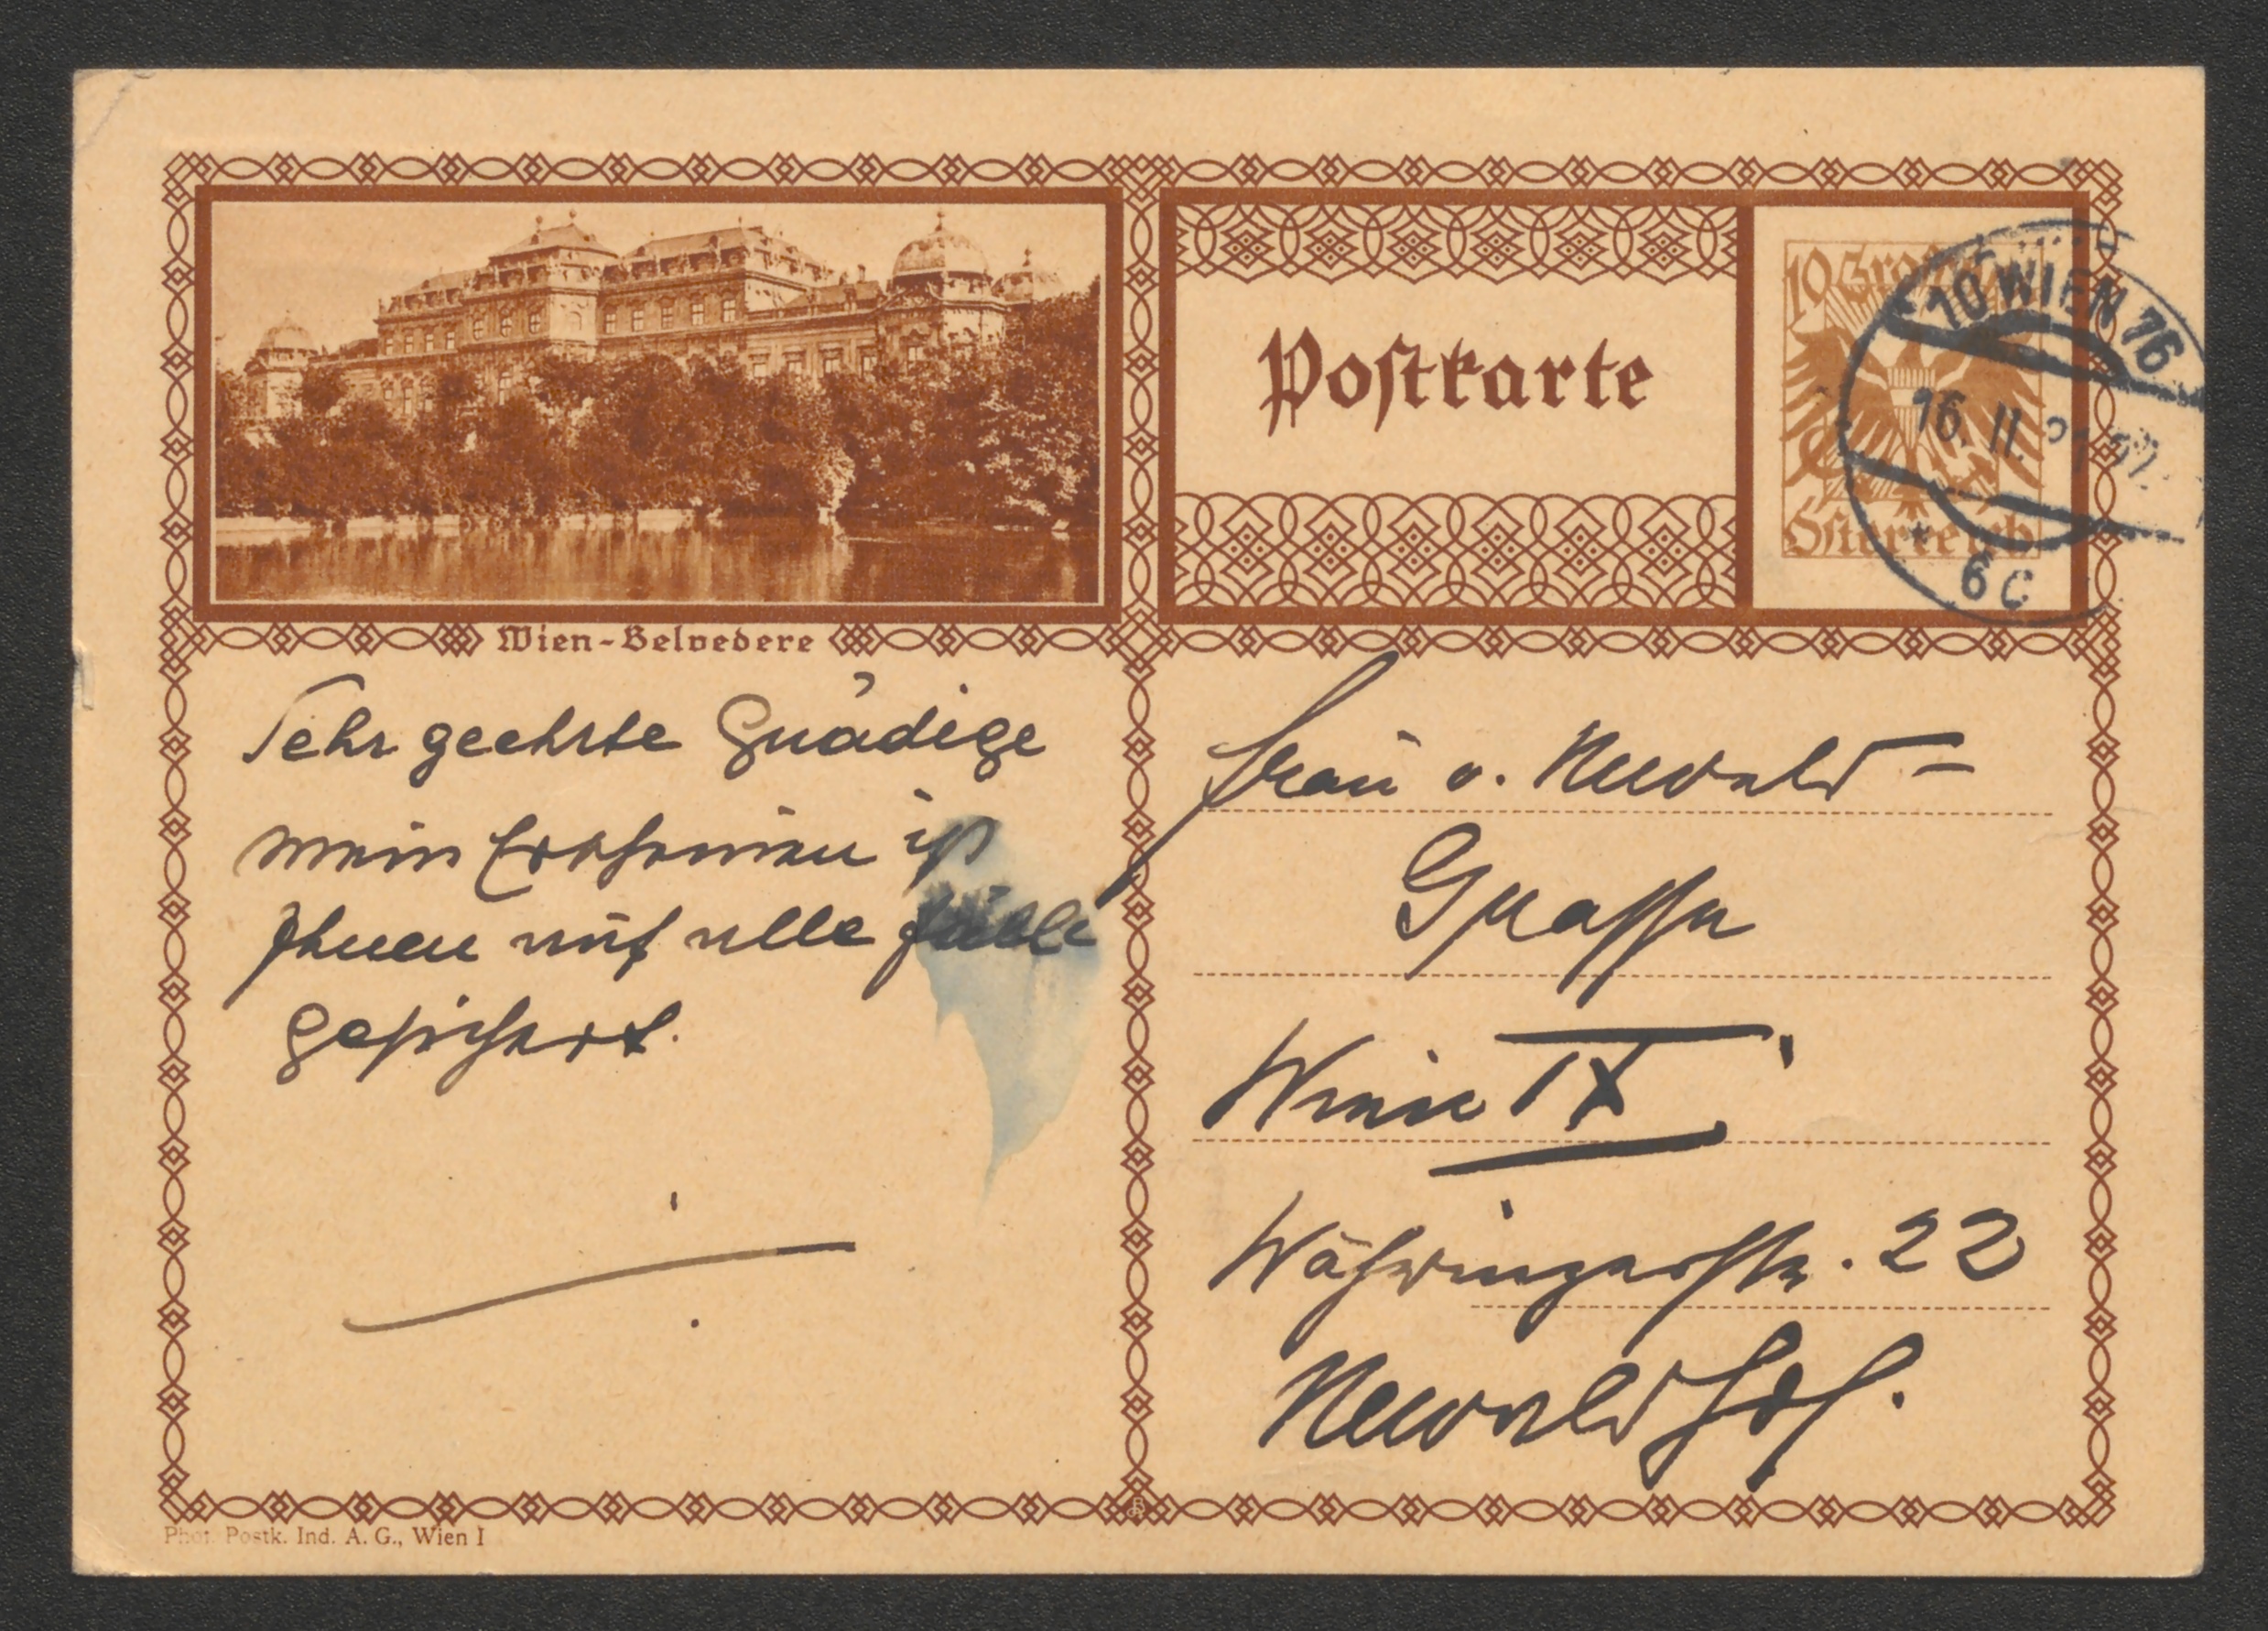 Wien-Belvedere
Sehr geehrte Gnädige
mein Erscheinen ist
Ihnen auf alle Fälle
gesichert.
Phot. Postk. Ind. A. G., Wien I
Postkarte
10 Groschen
Österreich
10 WIEN 76
16. II.
* 6C
Frau v. Newald-
Grasse
Wien IX
Währingerstr. 22
Newaldhof.